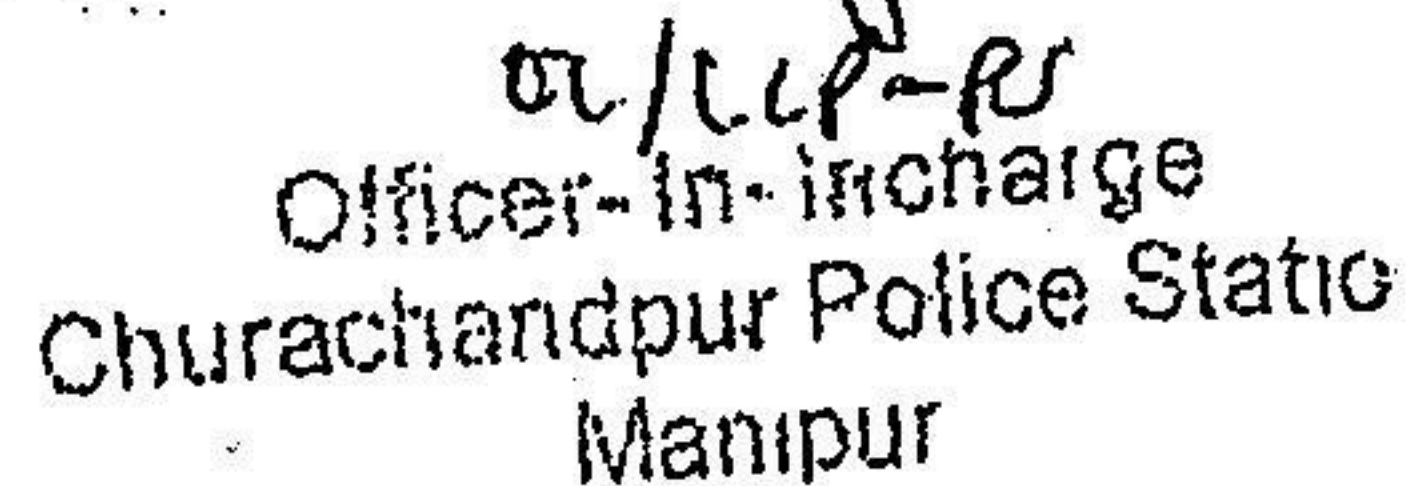 OC/CCP-PS
Officer-In-incharge
Churachandpur Police Statio
Manipur